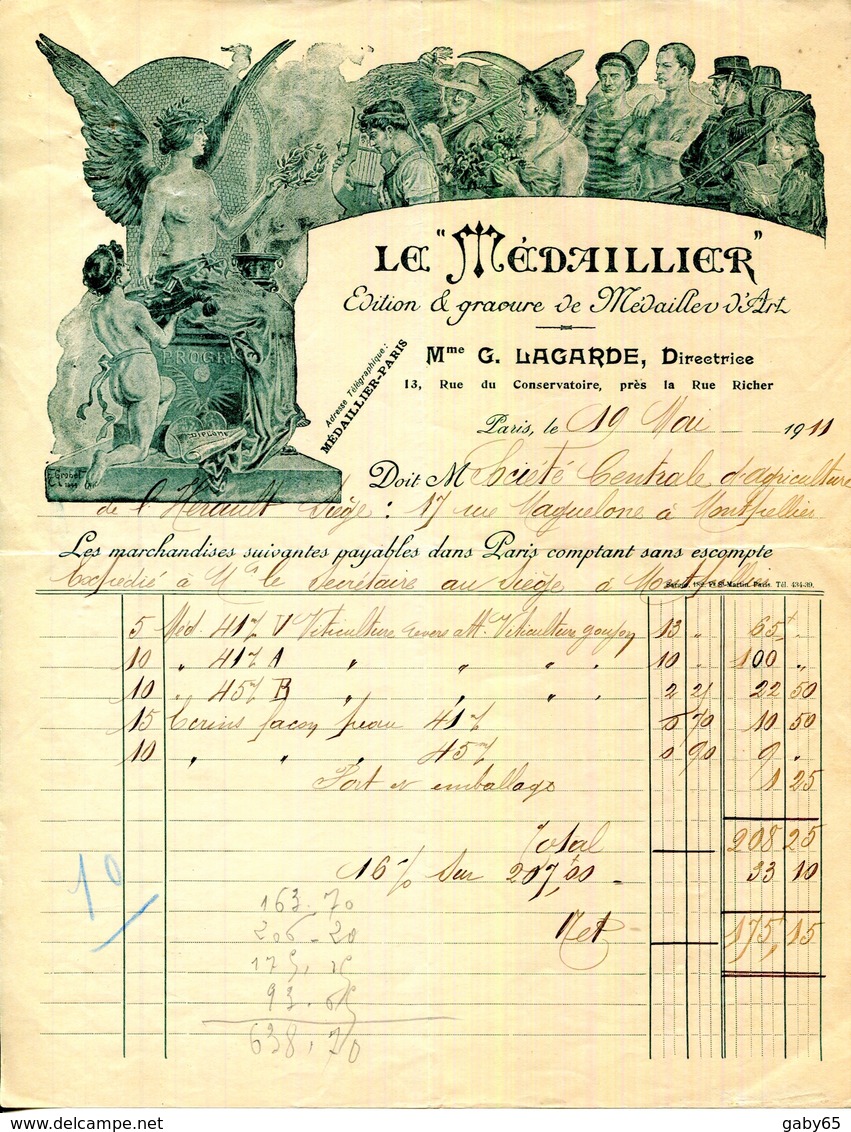 PROGRE
DIPLOME
LE "MÉDAILLIER"
Edition & gravure de Médailles d'Art
Mme G. LAGARDE, Directrice
13, Rue du Conservatoire, près la Rue Richer
Adresse Télégraphique:
MÉDAILLIER-PARIS
Paris, le 19 Mai 1911
Doit M Société Centrale d'agriculture
de l'Hérault Siège : 17 rue Maguelone à Montpellier
Les marchandises suivantes payables dans Paris comptant sans escompte
Expédié à Mr le Secrétaire au Siège à Montpellier
St Martin. Paris. Tél. 434-39.
5 Méd. 417 V Viticulture revers att. Viticulture 13 " 65 "
10 " 417 A " " " " 10 " 100 "
10 " 457 B " " " " 2 25 22 50
15 Ecrins façon peau 417 0 70 10 50
10 " " " 457 0 90 9 "
Port et emballage 1 25
Total 208 25
16 % sur 207,00 33 10
Net 175,15
10
163.70
206.20
175.15
93.65
638.70
gaby65